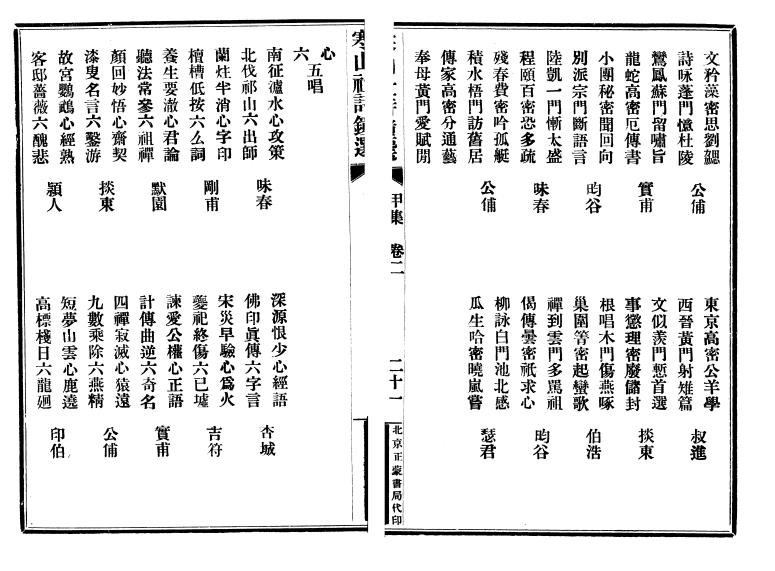 文矜藻密思劉勰
詩咏蓬門憶杜陵
公俌
東京高密公羊學
西晉黃門射雉篇
叔進
鸞鳳蘇門留嘯旨
龍蛇高密厄傳書
實甫
文似羨門慙首選
事懲理密廢儲封
掞東
小團秘密聞回向
別派宗門斷語言
昀谷
根唱木門傷燕啄
巢圍箐密起蠻歌
伯浩
陸凱一門慚太盛
程頤百密恐多疏
味春
禪到雲門多罵祖
偈傳曇密祇求心
昀谷
殘春費密吟孤艇
積水梧門訪舊居
公俌
柳詠白門池北感
瓜生哈密曉嵐嘗
瑟君
傳家高密分通藝
奉母黃門愛賦閒
寒山社詩鐘選 甲集 卷二 二十一
北京正蒙書局代印
心 五唱
六
南征瀘水心攻策
北伐祁山六出師
味春
深源恨少心經語
佛印眞傳六字言
杏城
蘭炷半消心字印
檀槽低按六么詞
剛甫
宋災早驗心爲火
夔祀終傷六已墟
吉符
養生要澈心君論
聽法常參六祖禪
默園
諫愛公權心正語
計傳曲逆六奇名
實甫
顏回妙悟心齋契
漆叟名言六鑿游
掞東
四禪寂滅心猿遠
九數乘除六燕精
公俌
故宮鸚鵡心經熟
客邸薔薇六醜悲
穎人
短夢山雲心鹿遶
高標棧日六龍廻
印伯